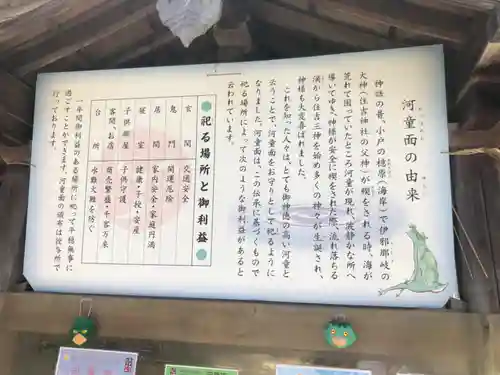 河童面の由来
神話の昔、小戸の檍原（海岸）で伊邪那岐の
大神（住吉神社の父神）が禊をされる時、海が
荒れて困っていたところ河童が現れ、波静かな所へ
導いてゆき、神様が安全に禊をされた際、流れ落ちる
滴から住吉三神を始め多くの神々が生誕され、
神様も大変喜ばれました。
これを知った人々は、とても御神徳の高い河童と
云うことで、河童面をお守りとして祀るように
なりました。河童面は、この伝承に基づくもので
祀る場所によって次のような御利益があると
云われています。
●祀る場所と御利益●
玄関 交通安全
鬼門 開運厄除
居間 家内安全・家庭円満
寝室 健康・子授・安産
子供部屋 子供守護
客間、お店 商売繁盛・千客万来
台所 水難火難を防ぐ
一年間御利益のある場所に祀って平穏無事に
過ごすことができます。河童面の頒布は授与所で
行っております。